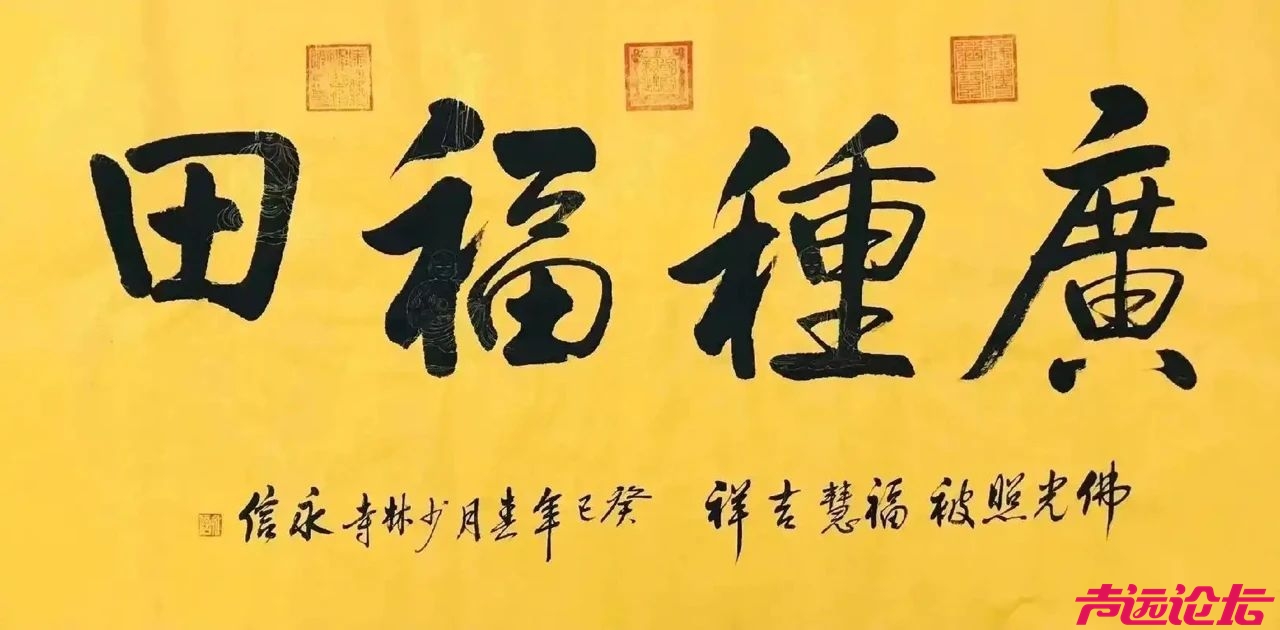 廣種福田
佛光照被 福慧吉祥 癸巳年春月少林寺永信
声远论坛